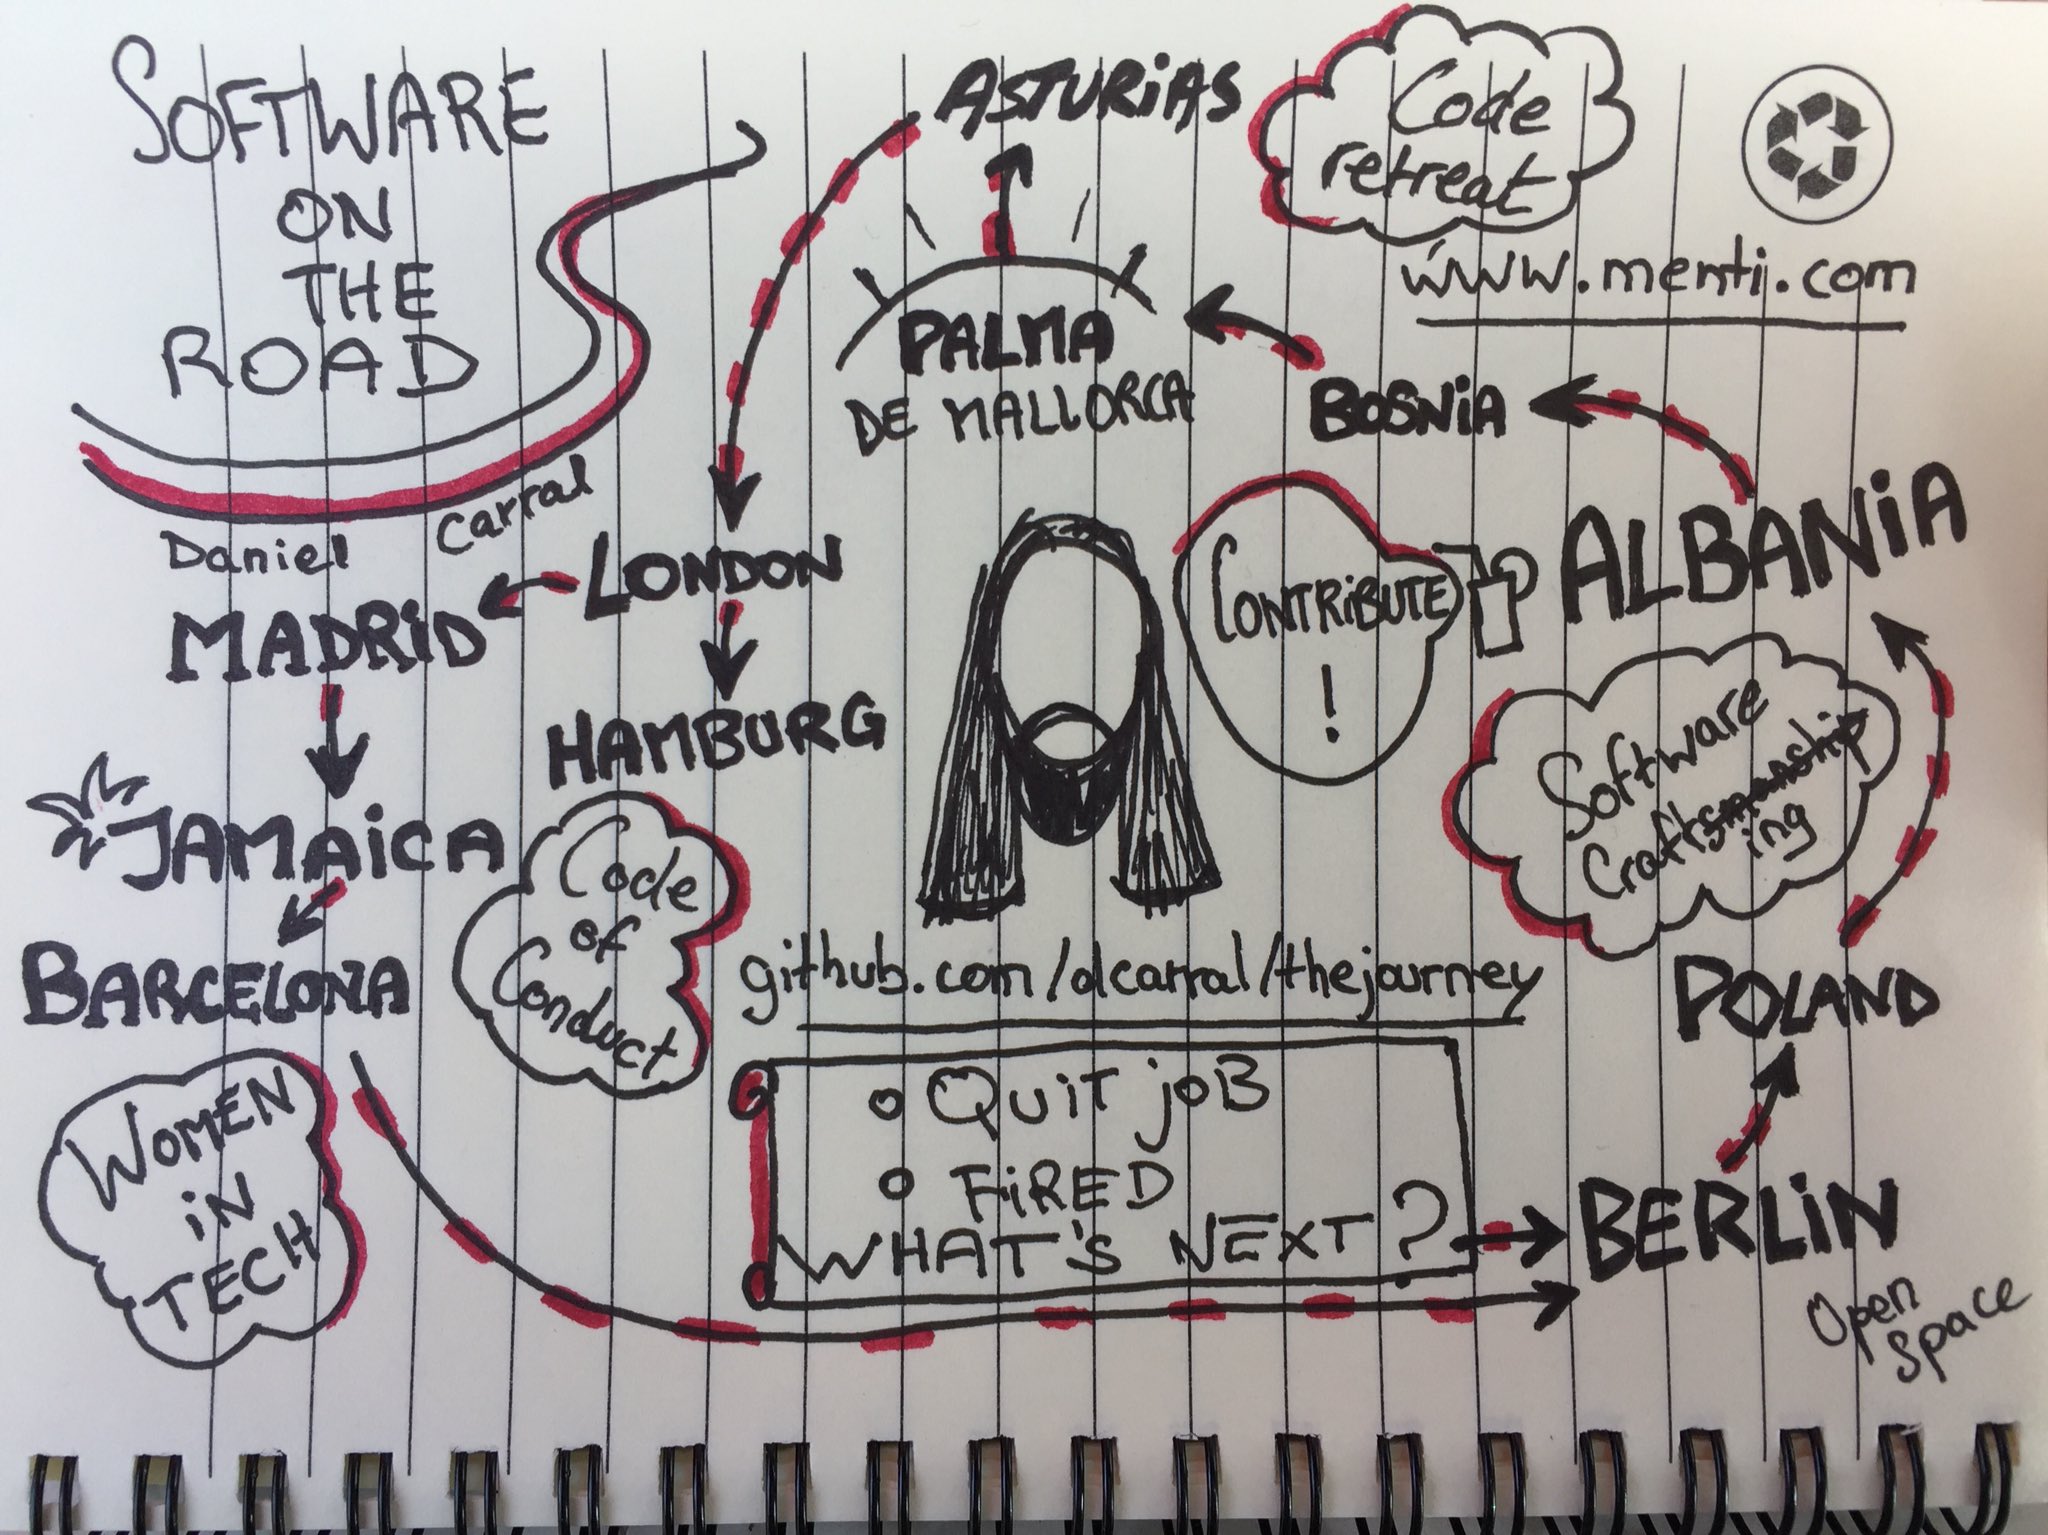 SOFTWARE
ON
THE
ROAD
Daniel Carral
ASTURiAS
Code
retreat
www.menti.com
PALMA
DE MALLORCA
BOSNiA
ALBANiA
CONTRiBUTE
!
LONDON
MADRiD
HAMBURG
JAMAiCA
Code
of
Conduct
BARCELONA
Software
Craftsmanship
ing
POLAND
github.com/dcarral/thejourney
WOMEN
iN
TECH
o QUiT joB
o FiRED
WHAT'S NEXT?
BERLiN
Open
Space